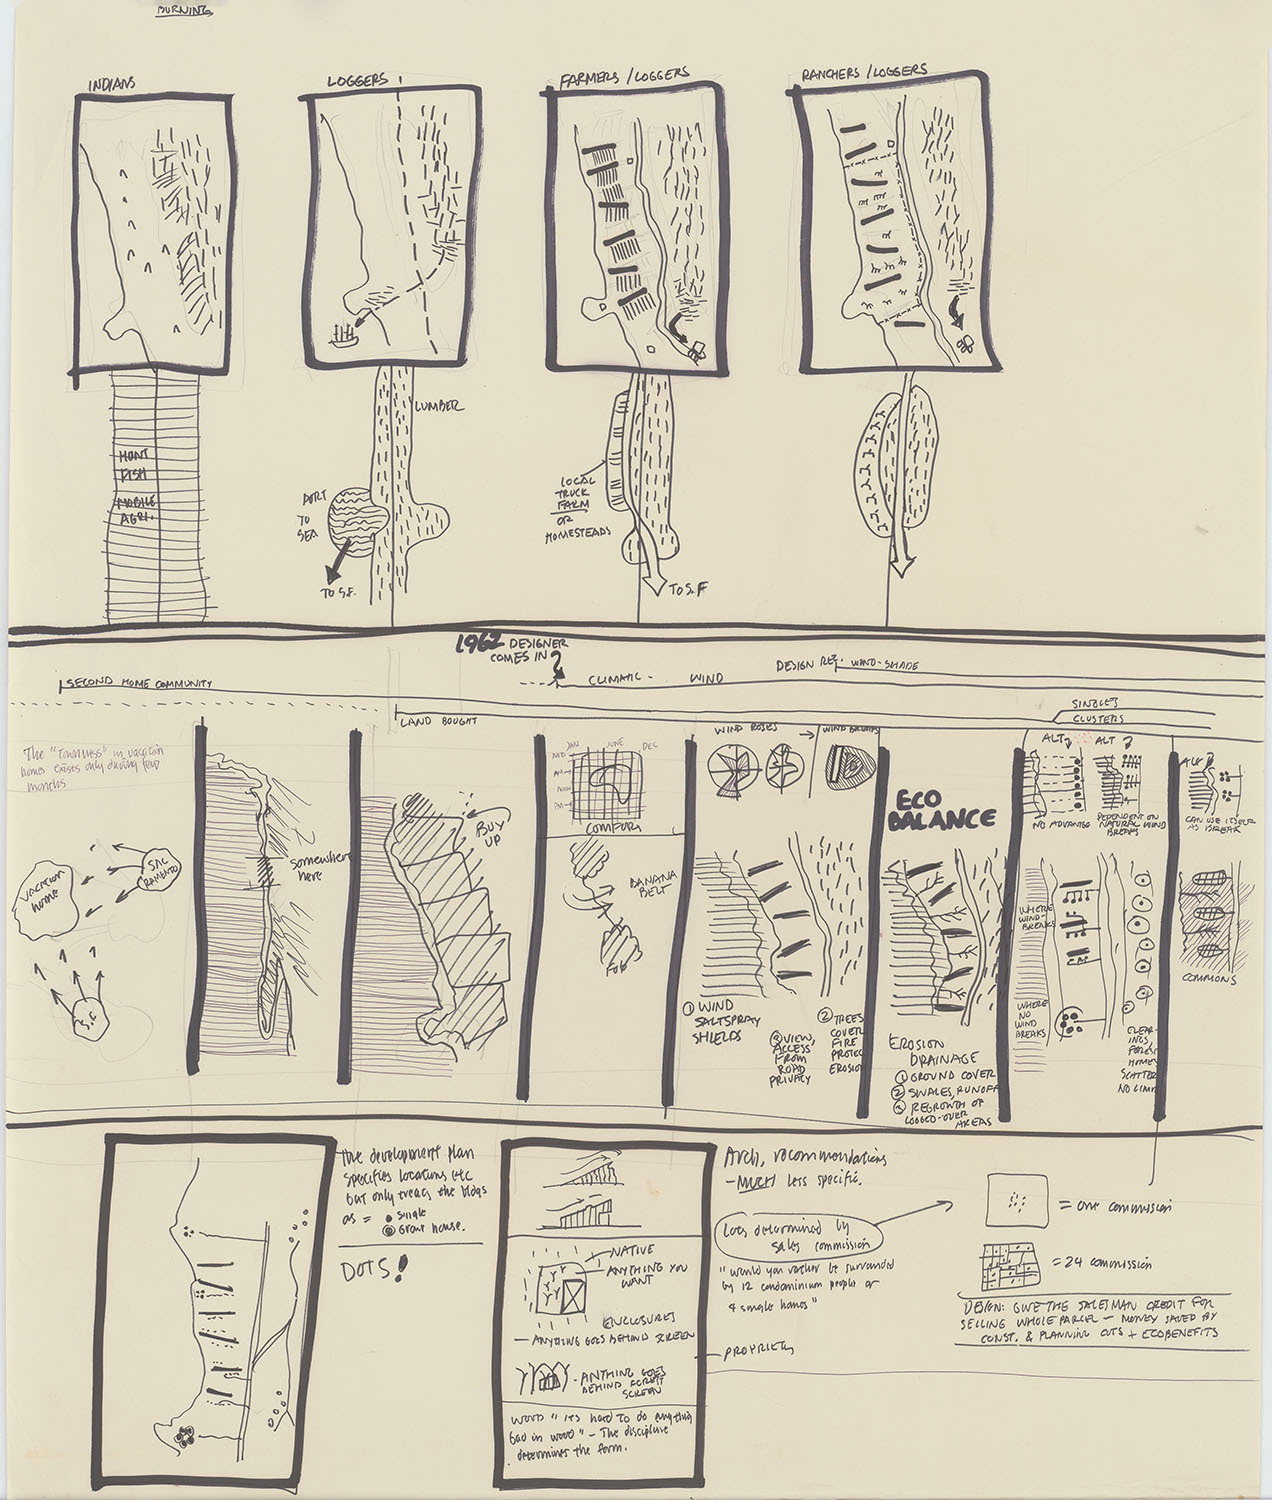 BURNING
INDIANS
LOGGERS
FARMERS/LOGGERS
RANCHERS/LOGGERS
HUNT
FISH
MOBILE
AGRI.
LUMBER
PORT
TO
SEA
TO S.F.
LOCAL
TRUCK
FARM
OR
HOMESTEADS
TO S.F
1962 DESIGNER
COMES IN
SECOND HOME COMMUNITY
CLIMATIC - WIND
DESIGN REF. WIND-SHADE
LAND BOUGHT
SINGLES
CLUSTERS
The "townness" in vacation
homes exists only during few
months
vacation
home
SAC
RAMENTO
S.F.
somewhere
here
BUY
UP
JAN JUNE DEC
MID
AM
NOON
PM
COMFORT
BANANA
BELT
FOG
WIND ROSES
WIND BREAKS
① WIND
SALTSPRAY
SHIELDS
③ VIEW,
ACCESS
FROM
ROAD
PRIVACY
② TREES
COVER
FIRE
PROTEC
EROSION
ECO
BALANCE
EROSION
DRAINAGE
① GROUND COVER
② SWALES, RUNOFF
③ REGROWTH OF
LOGGED-OVER
AREAS
ALT
NO ADVANTAGE
ALT
DEPENDENT ON
NATURAL WIND
BREAKS
ALT
CAN USE ITSELF
AS BREAK
WHERE
WIND-
BREAKS
WHERE
NO
WIND
BREAKS
CLEAR-
INGS
FOREST
HOMES
SCATTER
NO LIMIT
COMMONS
The development plan
specifies locations etc
but only treats the bldgs
as = ● single
◎ Group house.
DOTS!
NATIVE
ANYTHING YOU
WANT
ENCLOSURES
— ANYTHING GOES BEHIND SCREEN
- ANYTHING GOES
BEHIND FOREST
SCREEN
WOOD "its hard to do anything
bad in wood" - The discipline
determines the form.
Arch, recommendations
- MUCH less specific.
Lots determined by
sales commission
"would you rather be surrounded
by 12 condominium people or
4 single homes"
PROPRIETY
= one commission
= 24 commission
DESIGN: GIVE THE SALESMAN CREDIT FOR
SELLING WHOLE PARCEL — MONEY SAVED BY
CONST. & PLANNING CUTS + ECOBENEFITS